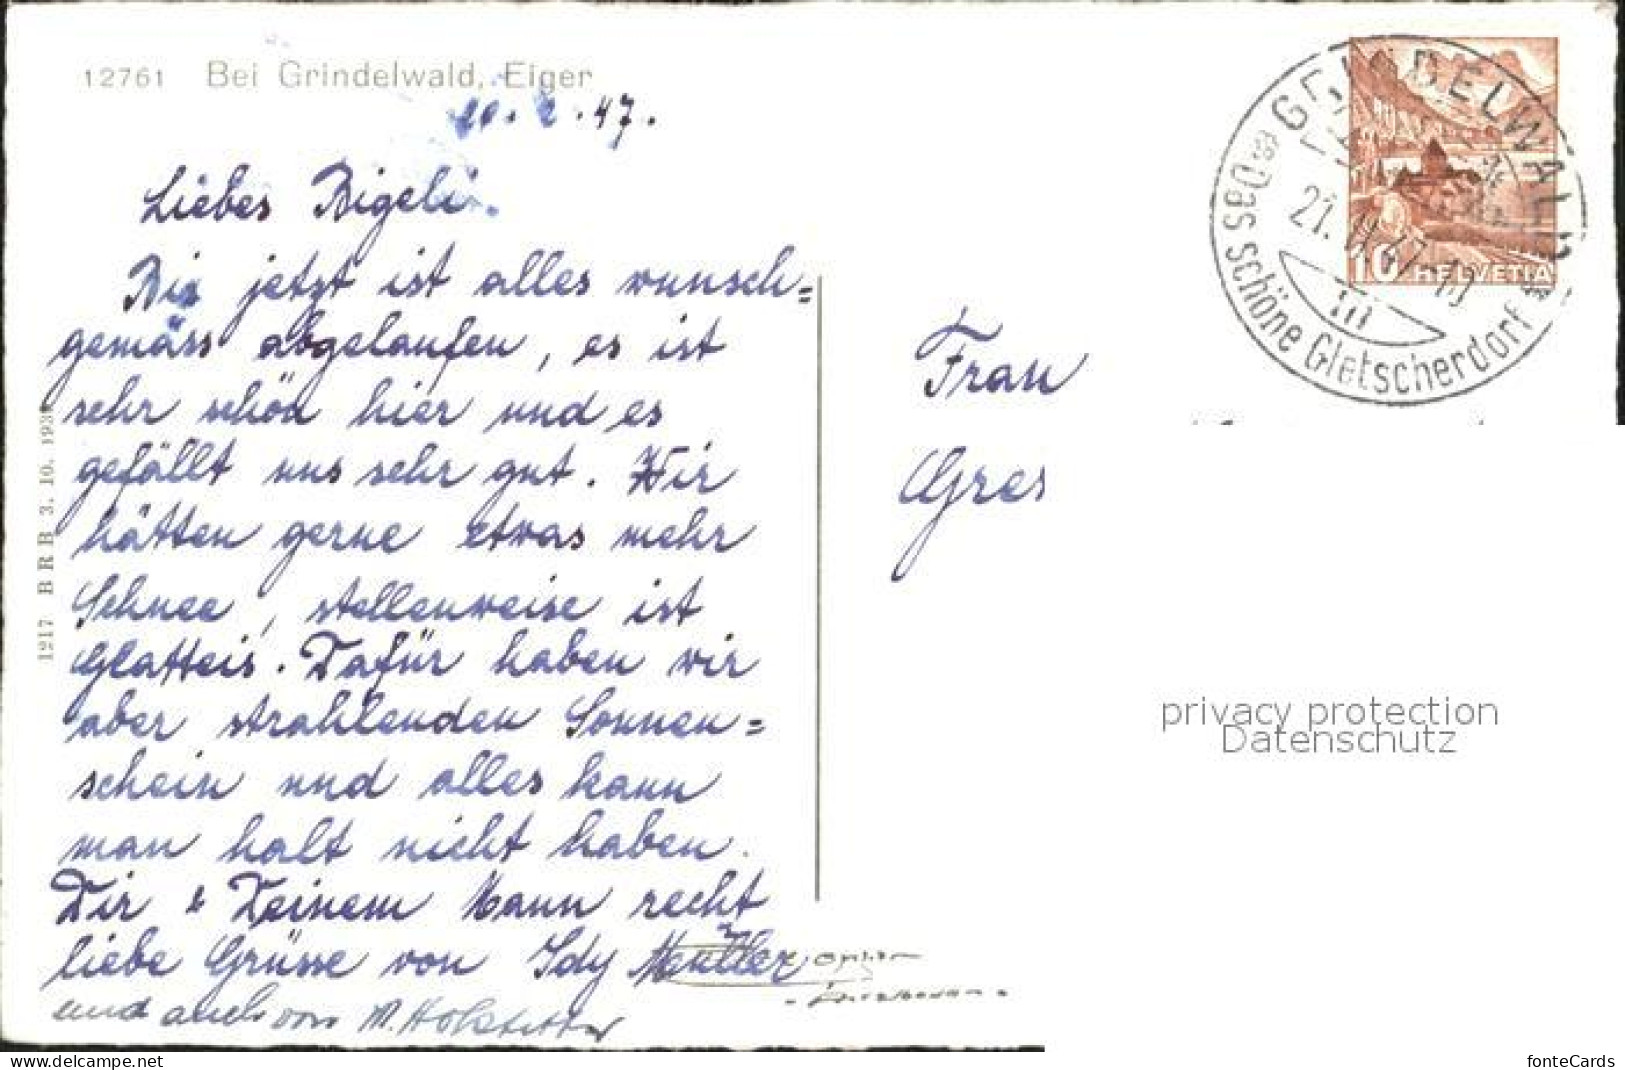 12761 Bei Grindelwald, Eiger
20. 2. 47.
Liebes Bigeli.
Bis jetzt ist alles wunsch=
gemäss abgelaufen, es ist
sehr schön hier und es
gefällt uns sehr gut. Wir
hätten gerne etwas mehr
Schnee, stellenweise ist
Glatteis. Dafür haben wir
aber strahlenden Sonnen=
schein und alles kann
man halt nicht haben.
Dir & Deinem Mann recht
liebe Grüsse von Idy Müller
und auch von M. Hofstetter
1917 B R B 3. 10. 193
GRINDELWALD
Das schöne Gletscherdorf
21. 47
10 HELVETIA
Frau
Gres
privacy protection
Datenschutz
fonteCards